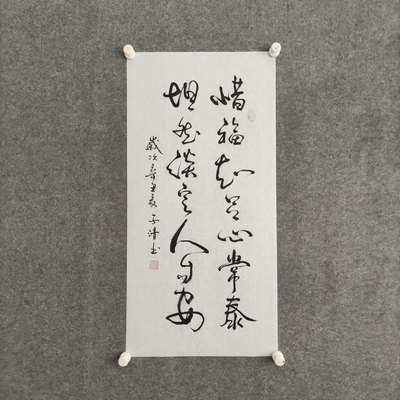 惜福知足心常泰
坦然淡定人自安
歲次辛丑夏子清书